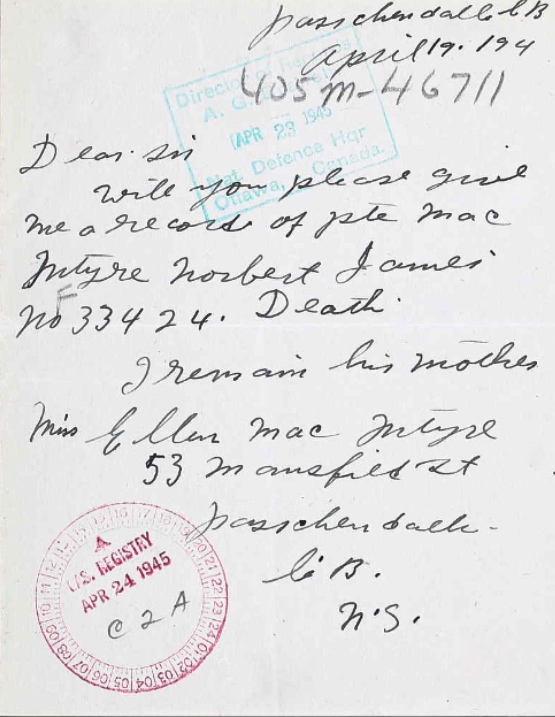 passchendalle C B
April 19. 194
405 M-46711
Director of Records
A. G.
APR 23 1945
Nat. Defence Hqr
Ottawa, Canada.
Dear Sir
will you please give
me a record of pte Mac
Intyre Norbert James
F
no 33424. Death.
I remain his mother
Miss Ellen Mac Intyre
53 Mansfield St
passchendalle.
C. B.
N.S.
A
REGISTRY
APR 24 1945
C 2 A